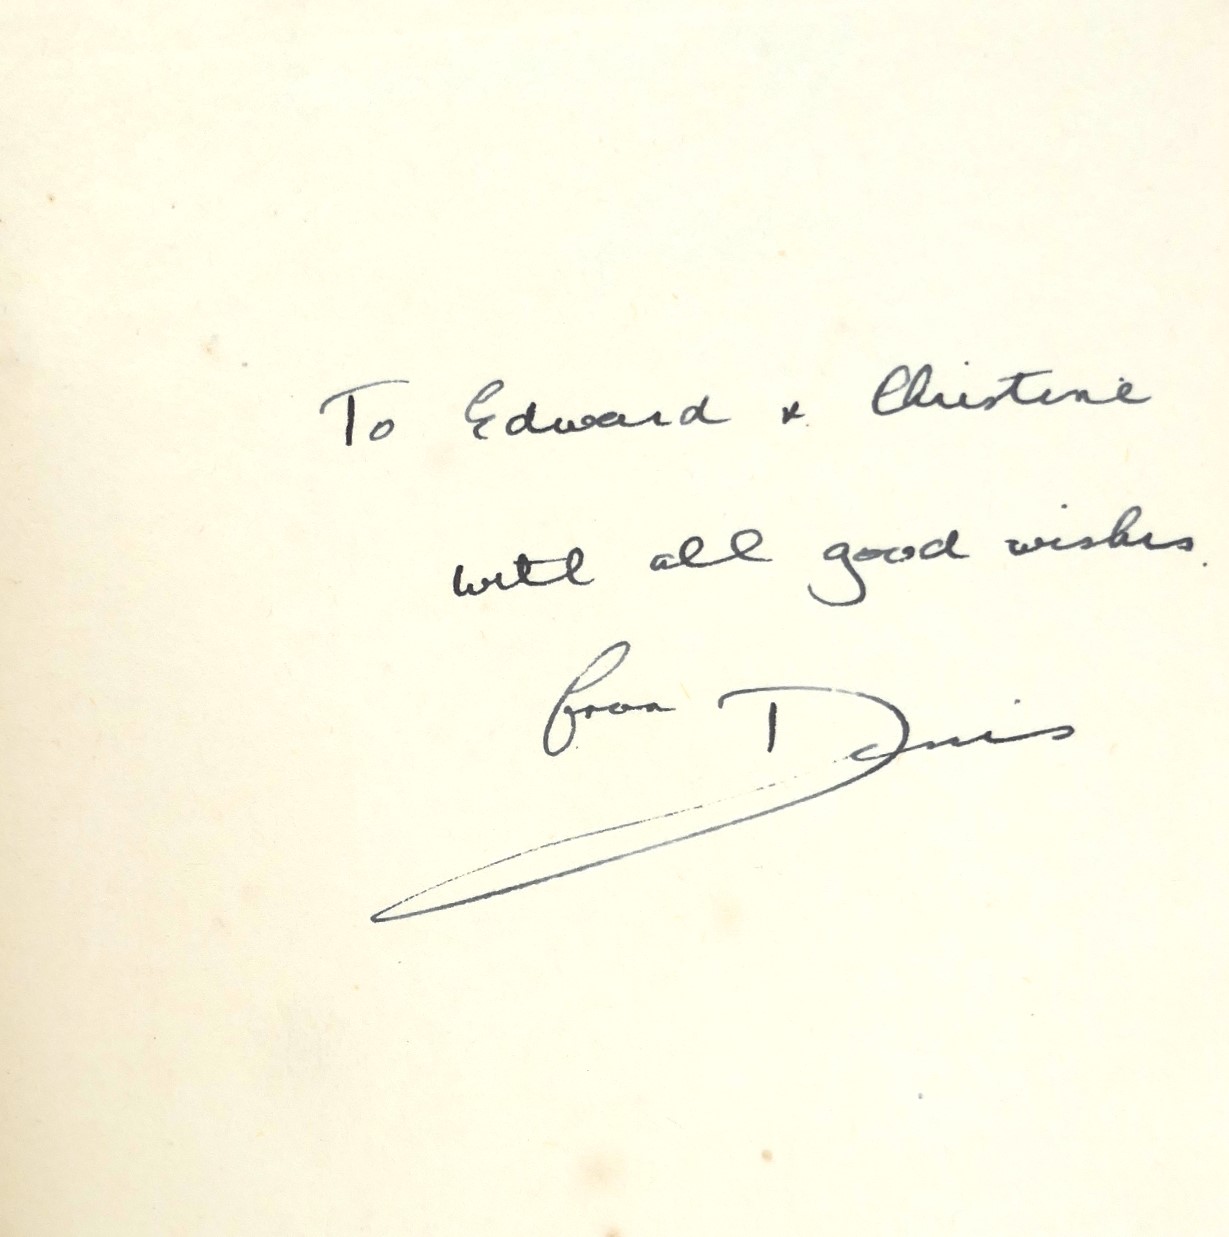 To Edward & Christine
with all good wishes.
from Denis